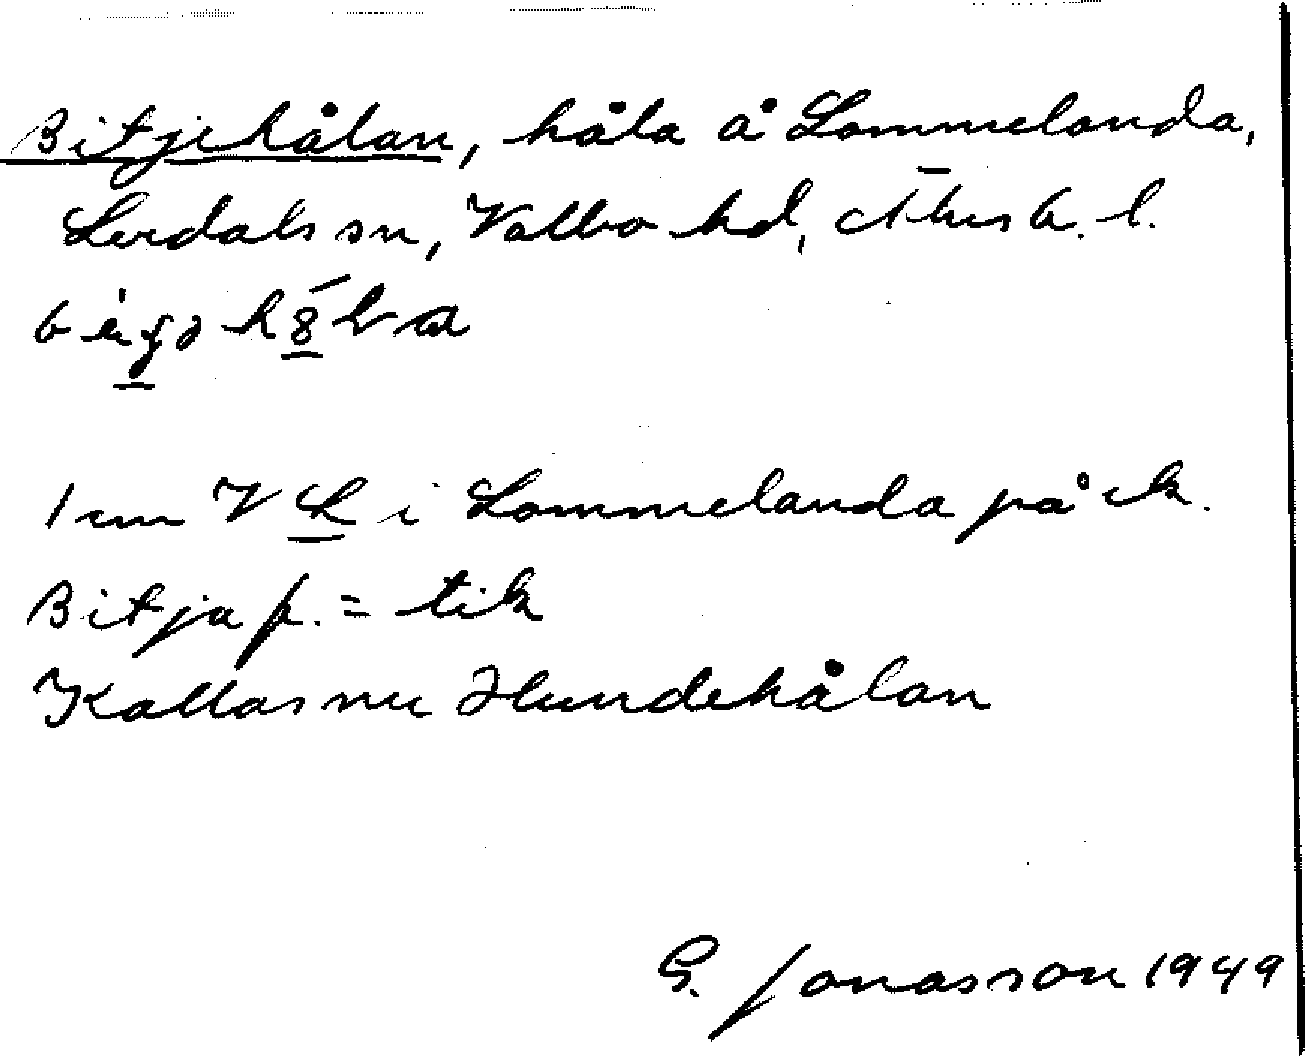 Bitjehålan, håla å Lommelanda,
Lerdals sn, Valbo hd, Älvsb. l.
1 cm V L i Lommelanda på ek.
Bitja f. = tik
Kallas nu Hundehålan
G. Jonasson 1949